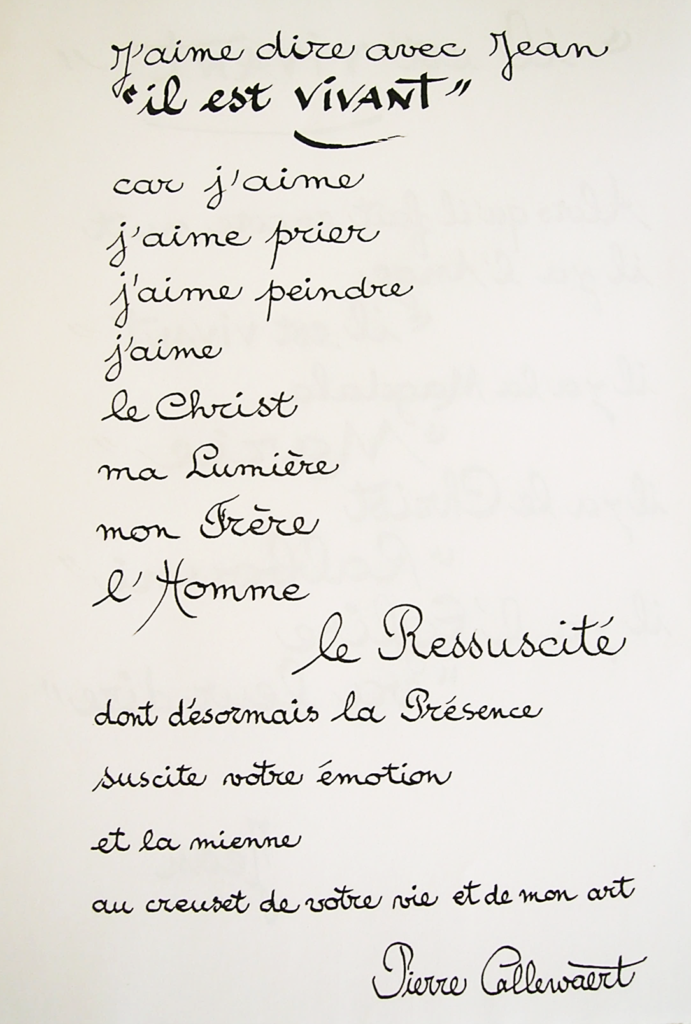 J'aime dire avec Jean
"il est VIVANT"
car j'aime
j'aime prier
j'aime peindre
j'aime
le Christ
ma Lumière
mon Frère
l'Homme
le Ressuscité
dont désormais la Présence
suscite votre émotion
et la mienne
au creuset de votre vie et de mon art
Pierre Callewaert